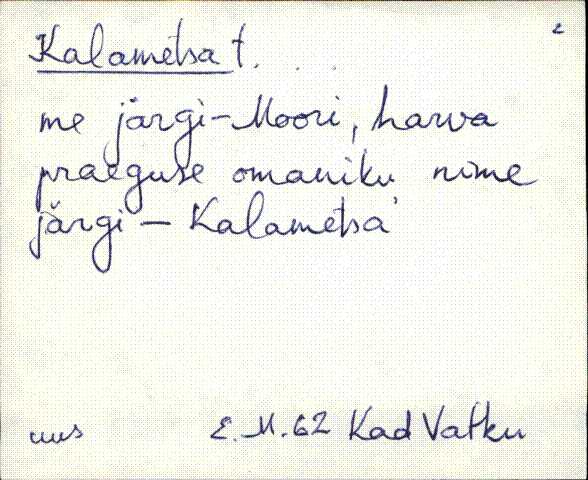 2
Kalametsa t.
me järgi - Moori, harva
praeguse omaniku nime
järgi - Kalametsa
uus E. M. 62 Kad Vatku